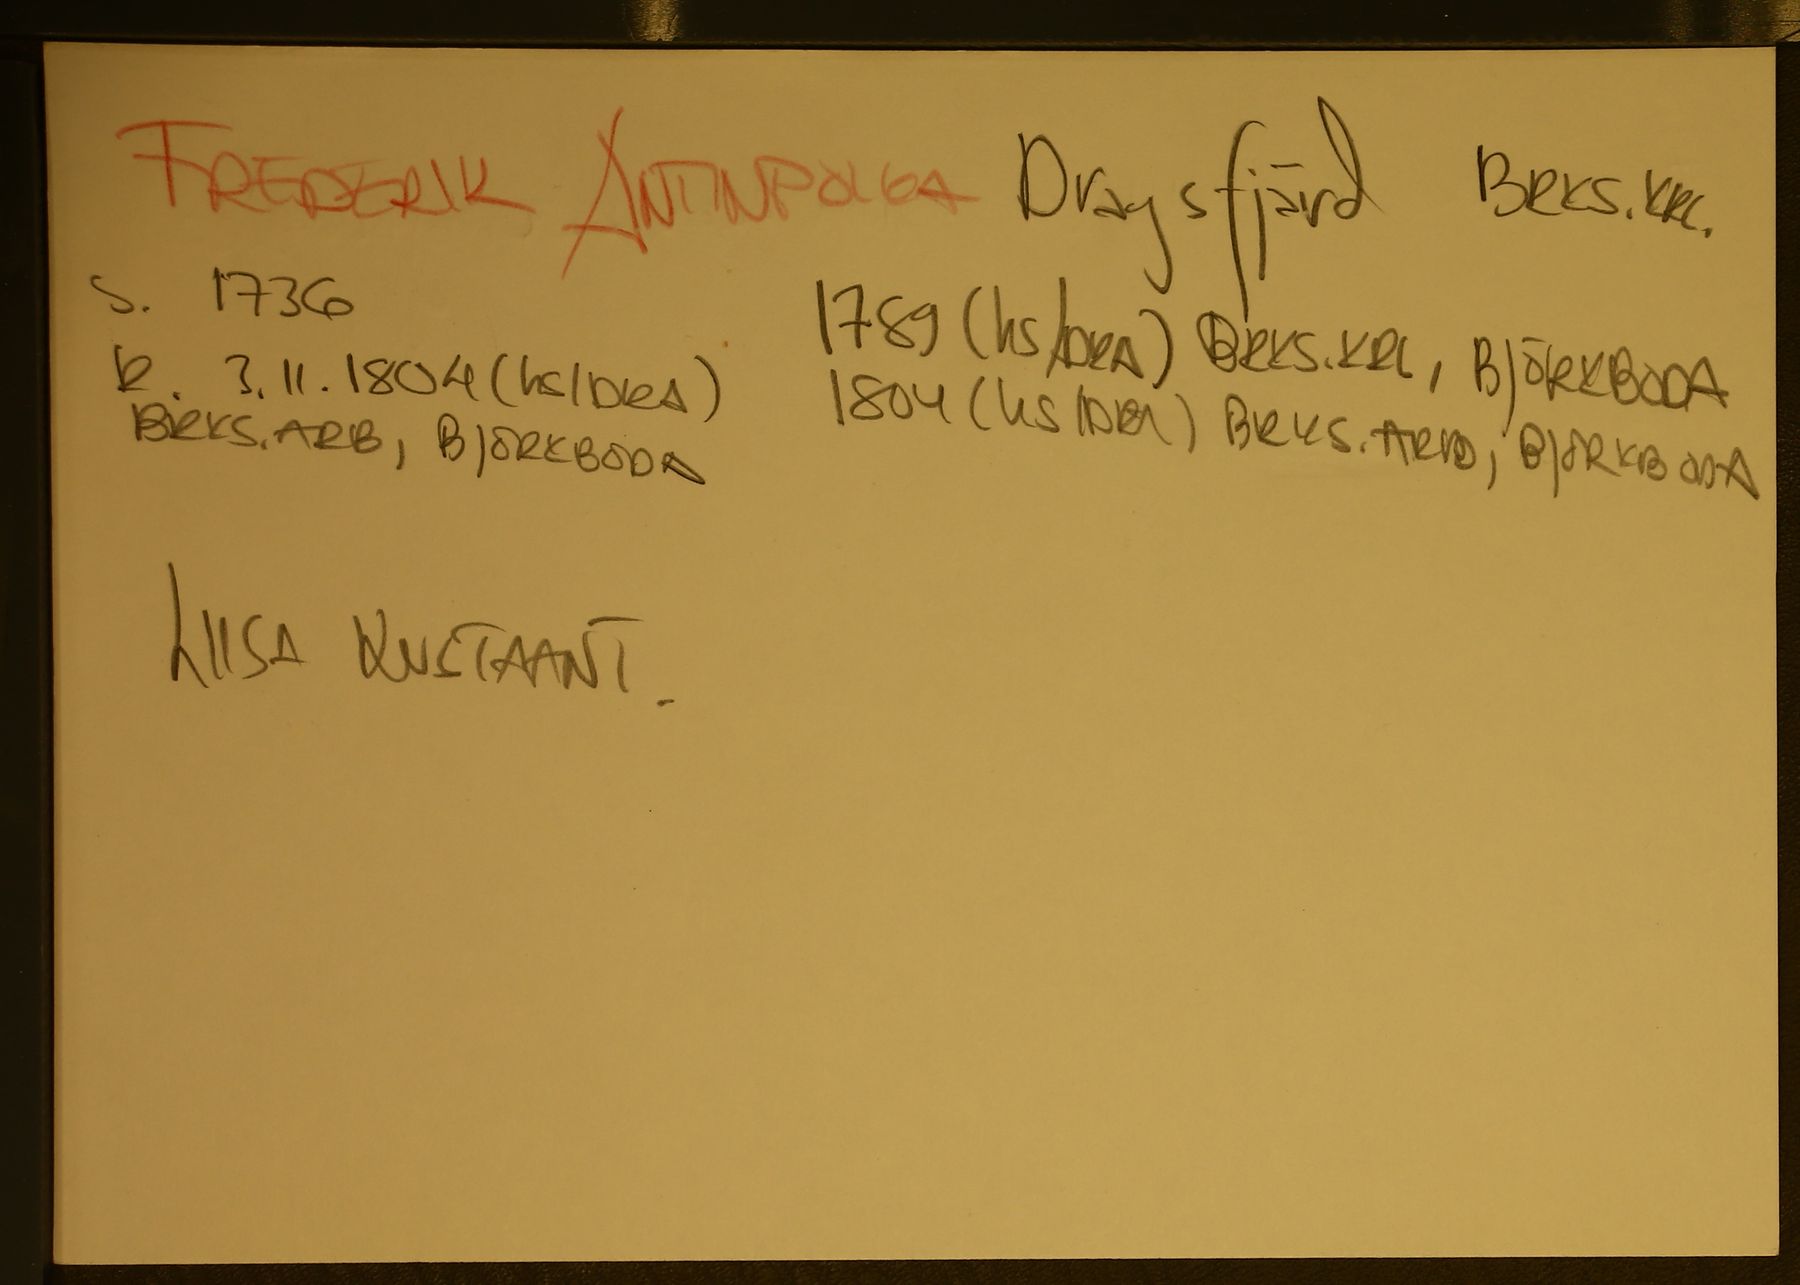 FREDERIK ANTINPOIKA Dragsfjärd BRKS.KRL.
S. 1736
K. 3.11.1804 (hs/DRA)
BRKS.ARB, BJÖRKBODA
1789 (hs/DRA) BRKS.KRL, BJÖRKBODA
1804 (hs/DRA) BRKS.ARB, BJÖRKBODA
LIISA KUSTAANT.